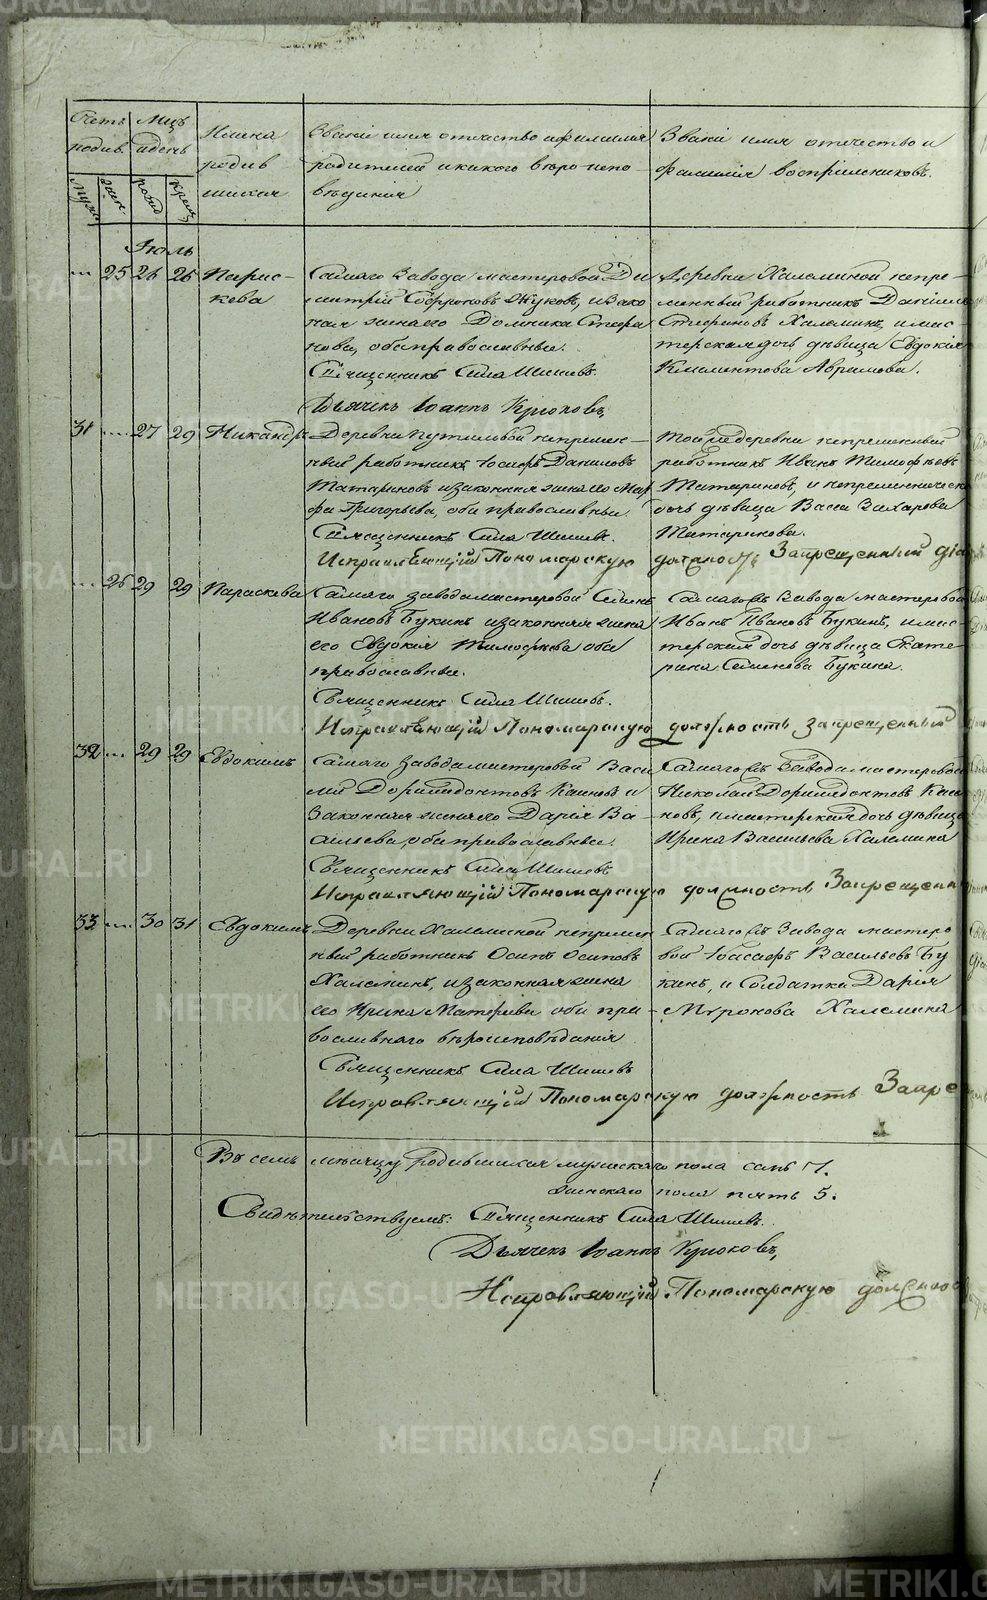 Счетъ родив.
Мцъ и день
Имена родив шихся
Званіе имя отчество и фамилія родителей и какого вѣроиспо вѣданія
Званіе имя отчество и фамилія воспріемниковъ.
Муж. Жен. рожд. крещ.
Іюль
25 26 26 Парас-
кева
Самаго Завода мастеровой Ди
митрій Софроновъ Жуковъ, и зако
ная жена его Домника Стефа
нова, оба православные.
Священникъ Сила Шишевъ.
Дьячекъ Іоаннъ Крюковъ,
Деревни Халеминой непре-
менный работникъ Даніилъ
Стефановъ Халеминъ, и мас-
терская дочь дѣвица Евдокія
Климентова Абрамова.
31 27 29 Никандръ
Деревни Путиловой непремен-
ный работникъ Іосифъ Даниловъ
Татариновъ и законная жена его Мар
фа Григорьева, оба православные.
Священникъ Сила Шишевъ.
Исправляющій Пономарскую должность Запрещенный діа
Той же деревни непременный
работникъ Иванъ Тимофѣевъ
Татариновъ, и непременническ
дочь дѣвица Васса Захарова
Татаринова.
26 29 29 Параскева
Самаго завода мастеровой Семенъ
Ивановъ Букинъ и законная жена
его Евдокія Тимофѣева оба
православные.
Священникъ Сила Шишевъ.
Исправляющій Пономарскую должность запрещенный
Самаго Завода мастеровой
Иванъ Ивановъ Букинъ, и мас-
терская дочь дѣвица Екате-
рина Семенова Букина.
32 29 29 Евдокимъ
Самаго Завода мастеровой Васи
лій Доримедонтовъ и
Законная жена его Дарія Ва
сильева, оба православные.
Священникъ Сила Шишевъ
Исправляющій Пономарскую должность Запрещенн
Самаго Завода мастеровой
Николай Доримедонтовъ
новъ, и мастерская дочь дѣвица
Ирина Васильева Халемина
33 30 31 Евдокимъ
Деревни Халеминой непремен
ный работникъ Осипъ Осиповъ
Халеминъ, и законная жена
его Ирина Матфеева оба пра-
вославнаго вѣроисповѣданія
Священникъ Сила Шишевъ
Исправляющій Пономарскую должность Запре
Самаго Завода мастеро
вой Іоасафъ Васильевъ Бу
кинъ, и Солдатка Дарія
Миронова Халемина
Въ семъ мѣсяцу родившихся мужескаго пола семь 7.
женскаго пола пять 5.
Свидѣтельствуемъ: Священникъ Сила Шишевъ.
Дьячекъ Іоаннъ Крюковъ,
Исправляющій Пономарскую должнос
METRIKI.GASO-URAL.RU